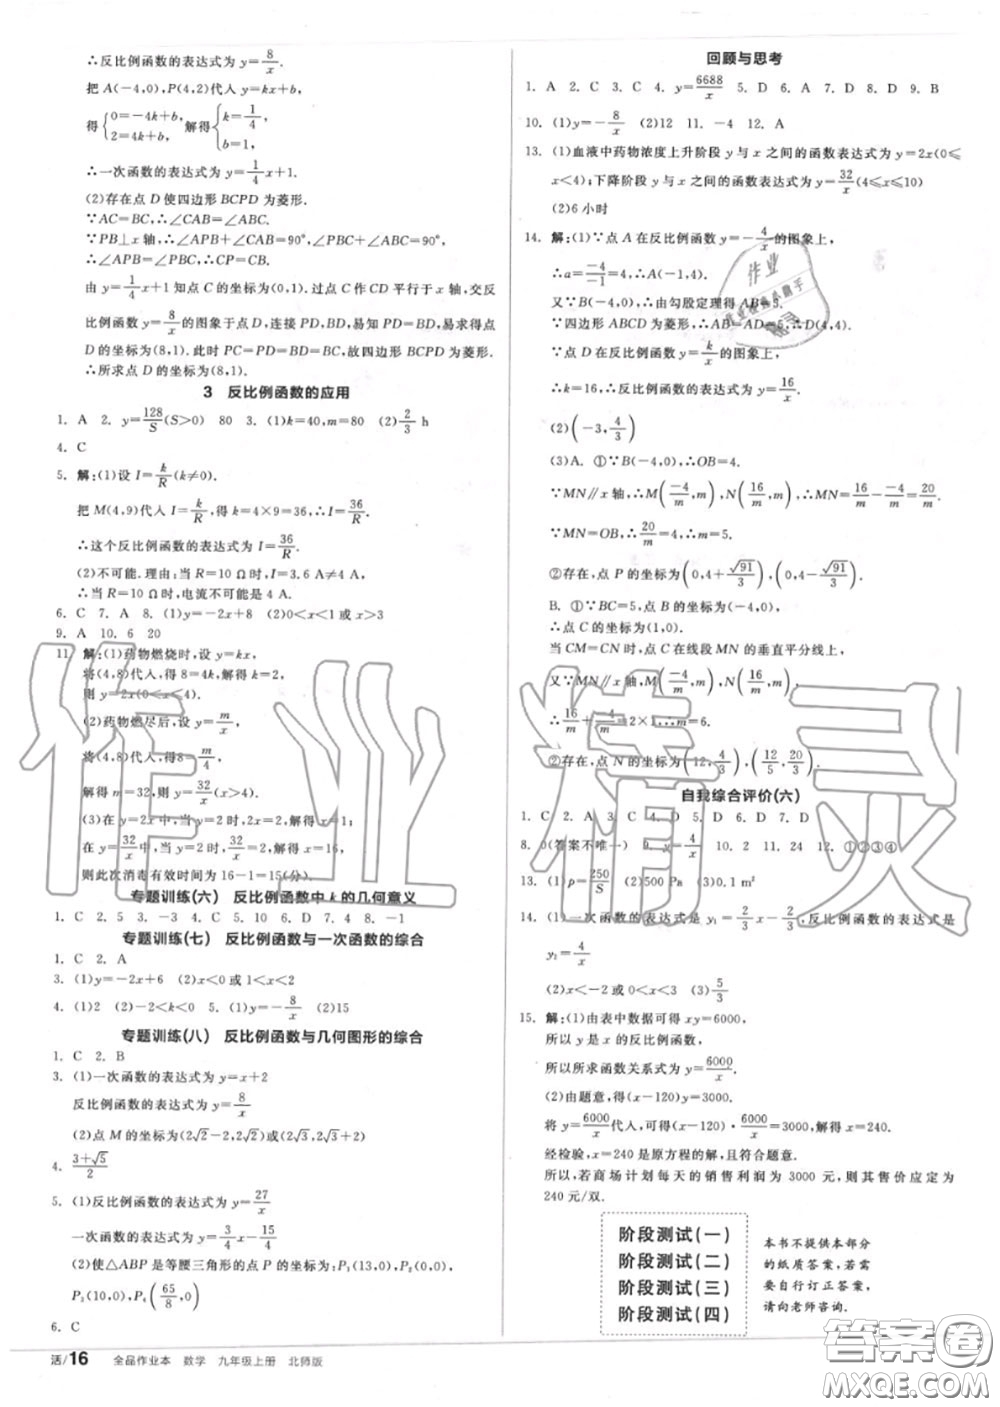 ∴反比例函数的表达式为 y=8/x.
把 A(-4,0),P(4,2)代入 y=kx+b,
得{0=-4k+b, 2=4k+b, 解得{k=1/4, b=1,
∴一次函数的表达式为 y=1/4x+1.
(2)存在点 D 使四边形 BCPD 为菱形.
∵AC=BC,∴∠CAB=∠ABC.
∵PB⊥x 轴,∴∠APB+∠CAB=90°,∠PBC+∠ABC=90°,
∴∠APB=∠PBC,∴CP=CB.
由 y=1/4x+1 知点 C(0,1).过点 C 作 CD 平行于 x 轴,交反
比例函数 y=8/x的图象于点 D,连接 PD,BD,易知 PD=BD,易求得点
D 的坐标为(8,1).此时 PC=PD=BD=BC,故四边形 BCPD 为菱形.
∴所求点 D 的坐标为(8,1).
3 反比例函数的应用
1. A 2. y=128/S(S>0) 80 3. (1)k=40,m=80 (2)2/3 h
4. C
5. 解:(1)设 I=k/R(k≠0).
把 M(4,9)代入 I=k/R,得 k=4×9=36,∴I=36/R.
∴这个反比例函数的表达式为 I=36/R.
(2)不可能.理由:当 R=10 Ω时,I=3.6 A≠4 A.
∴当 R=10 Ω时,电流不可能是 4 A.
6. C 7. A 8. (1)y=-2x+8 (2)0<x<1 或 x>3
9. A 10. 6 20
11. 解:(1)药物燃烧时,设 y=kx,
将(4,8)代入,得 8=4k,解得 k=2,
则 y=2x(0<x≤4).
(2)药物燃尽后,设 y=m/x,
将(4,8)代入,得 8=m/4,
解得 m=32,则 y=32/x(x>4).
(3)在 y=2x 中,当 y=2时,2x=2,解得 x=1;
在 y=32/x中,当 y=2时,32/x=2,解得 x=16,
则此次消毒有效时间为 16-1=15(分).
专题训练(六) 反比例函数中 k 的几何意义
1. C 2. 5 3. -3 4. C 5. 10 6. D 7. 4 8. -1
专题训练(七) 反比例函数与一次函数的综合
1. C 2. A
3. (1)y=-2x+6 (2)x<0 或 1<x<2
4. (1)2 (2)-2<k<0 5. (1)y=-8/x (2)15
专题训练(八) 反比例函数与几何图形的综合
1. C 2. B
3. (1)一次函数的表达式为 y=x+2
反比例函数的表达式为 y=8/x
(2)点 M 的坐标为(2√2-2,2√2)或(2√3,2√3+2)
4. (3+√5)/2
5. (1)反比例函数的表达式为 y=27/x
一次函数的表达式为 y=3/4x-15/4
(2)使△ABP 是等腰三角形的点 P 的坐标为:P₁(13,0),P₂(-3,0),
P₃(10,0),P₄(65/8,0)
6. C
活/16 全品作业本 数学 九年级上册 北师版
回顾与思考
1. A 2. C 3. C 4. y=6688/x 5. D 6. A 7. D 8. D 9. B
10. (1)y=-8/x (2)12 11. -4 12. A
13. (1)血液中药物浓度上升阶段 y 与 x 之间的函数表达式为 y=2x(0≤
x<4);下降阶段 y 与 x 之间的函数表达式为 y=32/x(4≤x≤10)
(2)6 小时
14. 解:(1)∵点 A 在反比例函数 y=-4/x的图象上,
∴a=-4/-4=1,∴A(-1,4).
又∵B(-4,0),∴由勾股定理得 AB=5.
∵四边形 ABCD 为菱形,∴AB=AD=5,∴D(4,4).
∵点 D 在反比例函数 y=k/x的图象上,
∴k=16,∴反比例函数的表达式为 y=16/x.
(2)(-3,4/3)
(3)A. ①∵B(-4,0),∴OB=4.
∵MN∥x 轴,∴M(-4/m,m),N(16/m,m),∴MN=16/m--4/m=20/m
∵MN=OB,∴20/m=4,∴m=5.
②存在,点 P 的坐标为(0,4+√91/3),(0,4-√91/3)
B. ①∵BC=5,点 B 的坐标为(-4,0),
∴点 C 的坐标为(1,0).
当 CM=CN时,点 C 在线段 MN 的垂直平分线上,
又∵MN∥x 轴,M(-4/m,m),N(16/m,m),
∴16/m+-4/m=2×1,∴m=6.
②存在,点 N 的坐标为(12,4/3),(12/5,20/3)
自我综合评价(六)
1. C 2. A 3. C 4. D 5. D 6. D 7. D
8. 0(答案不唯一) 9. y=4/x 10. 2 11. 24 12. ①②③④
13. (1)p=250/S (2)500 Pa (3)0.1 m²
14. (1)一次函数的表达式是 y₁=2/3x-2/3,反比例函数的表达式是
y₂=4/x
(2)x<-2 或 0<x<3 (3)5/3
15. 解:(1)由表中数据可得 xy=6000,
所以 y 是 x 的反比例函数,
所以所求函数关系式为 y=6000/x.
(2)由题意,得(x-120)y=3000.
将 y=6000/x代入,可得(x-120)·6000/x=3000,解得 x=240.
经检验,x=240 是原方程的解,且符合题意.
所以,若商场计划每天的销售利润为 3000 元,则其售价应定为
240 元/双.
阶段测试(一)
阶段测试(二)
阶段测试(三)
阶段测试(四)
本书不提供本部分
的纸质答案,若需
要自行订正答案,
请向老师咨询.
作业精灵
答案圈
MXQE.COM